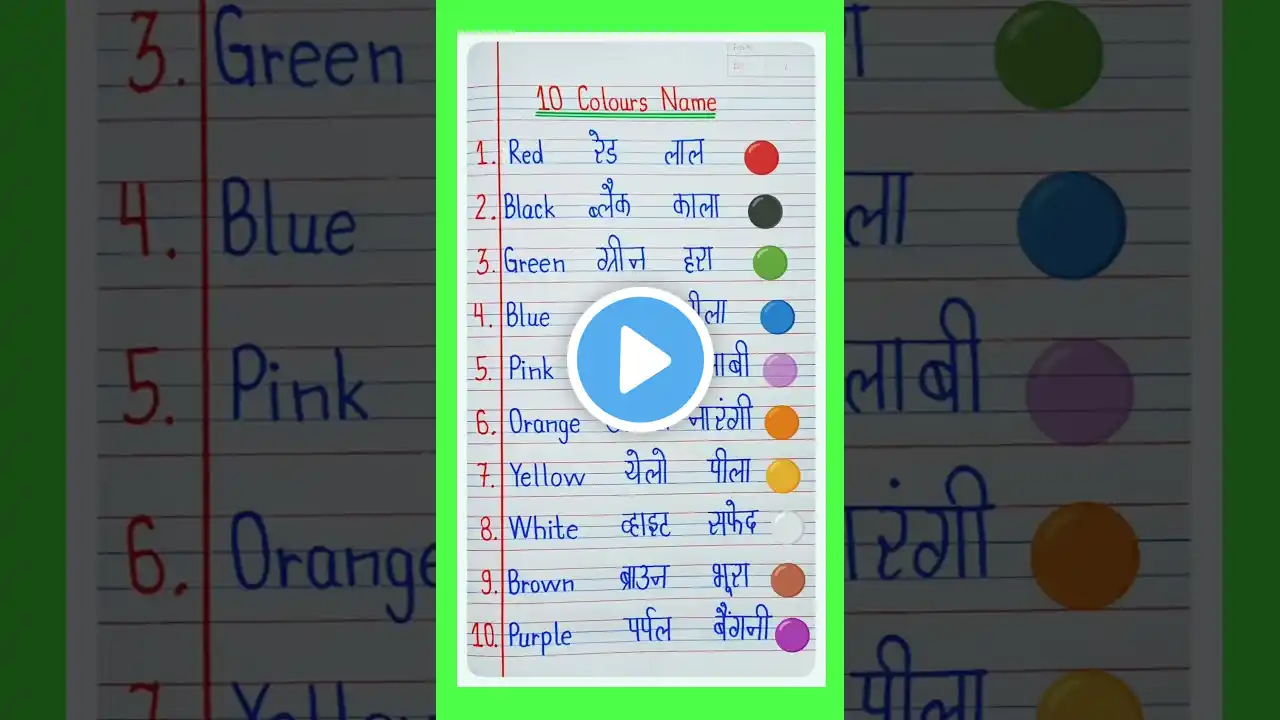 10 Colours Name
1. Red रेड लाल
2. Black ब्लैक काला
3. Green ग्रीन हरा
4. Blue
5. Pink
6. Orange नारंगी
7. Yellow येलो पीला
8. White व्हाइट सफेद
9. Brown ब्राउन भूरा
10. Purple पर्पल बैंगनी
3. Green
4. Blue
5. Pink
6. Orange
7.
पीला